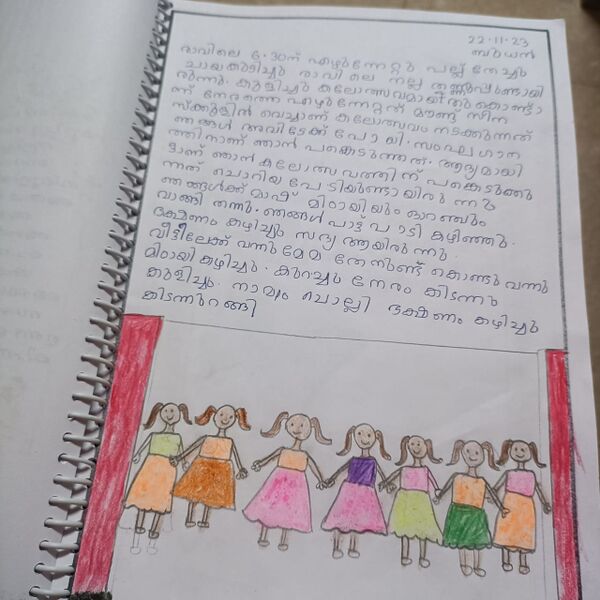 22.11.23
ബുധൻ
രാവിലെ 6.30ന് എഴുന്നേറ്റു പല്ല് തേച്ചു
ചായകുടിച്ചു രാവിലെ നല്ല തണുപ്പുണ്ടായി
രുന്നു. കുളിച്ചു കലോത്സവമായതുകൊണ്ടാ
ണ് നേരത്തെ എഴുന്നേറ്റത് മൗണ്ട് സീന
സ്ക്കൂളിൽ വെച്ചാണ് കലോത്സവം നടക്കുന്നത്
ഞങ്ങൾ അവിടേക്ക് പോയി. സംഘഗാന
ത്തിനാണ് ഞാൻ പങ്കെടുത്തത്. ആദ്യമായി
ട്ടാണ് ഞാൻ കലോത്സവത്തിന് പങ്കെടുത്തു
ന്നത് ചെറിയ പേടിയുണ്ടായിരുന്നു
ഞങ്ങൾക്ക് മാഷ് മിഠായിയും ഓറഞ്ചും
വാങ്ങി തന്നു. ഞങ്ങൾ പാട്ട് പാടി കഴിഞ്ഞു.
ഭക്ഷണം കഴിച്ചു സദ്യ ആയിരുന്നു.
വീട്ടിലേക്ക് വന്നു മേമ തേനുണ്ട് കൊണ്ടു വന്നു
മിഠായി കഴിച്ചു. കുറച്ചു നേരം കിടന്നു
കുളിച്ചു. നാമം ചൊല്ലി ഭക്ഷണം കഴിച്ചു
കിടന്നുറങ്ങി